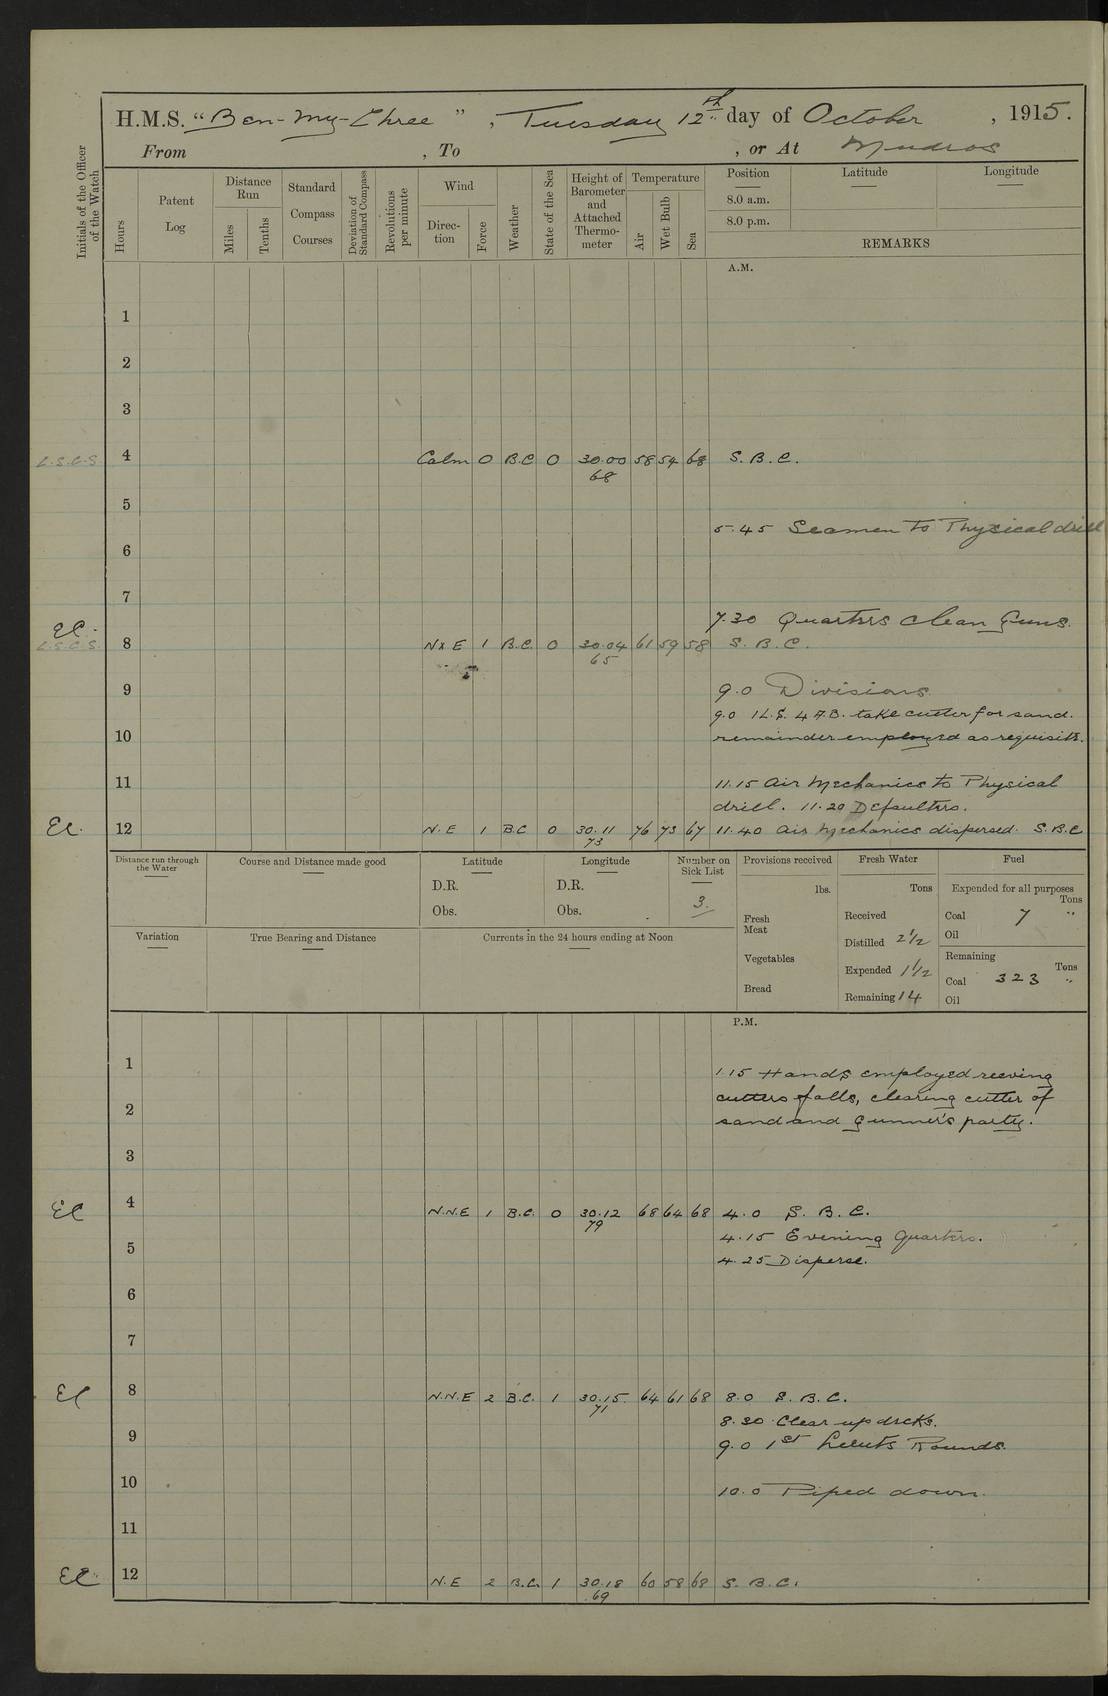 H.M.S. "Ben-My-Chree", Tuesday 12th day of October, 1915.
From , To , or At Mudros
Initials of the Officer of the Watch
Hours
Patent Log
Distance Run
Miles
Tenths
Standard Compass Courses
Deviation of Standard Compass
Revolutions per minute
Wind
Direction
Force
Weather
State of the Sea
Height of Barometer and Attached Thermometer
Temperature
Air
Wet Bulb
Sea
Position
8.0 a.m.
8.0 p.m.
Latitude
Longitude
REMARKS
A.M.
1
2
3
L.S.C.S 4 Calm 0 B.C 0 30.00 58 54 68 S.B.C.
68
5
5.45 Seamen to Physical drill
6
7
7.30 Quarters clean Guns.
EC.
L.S.C.S. 8 NxE 1 B.C. 0 30.04 61 59 58 S.B.C.
65
9 9.0 Divisions
9.0 1 L.S. 4 A.B. take cutter for sand.
10 remainder employed as requisite.
11 11.15 Air Mechanics to Physical
drill. 11.20 Defaulters.
EC. 12 N.E 1 BC 0 30.11 76 73 67 11.40 Air Mechanics dispersed. S.B.C
73
Distance run through the Water
Course and Distance made good
Latitude
D.R.
Obs.
Longitude
D.R.
Obs.
Number on Sick List
3.
Provisions received
lbs.
Fresh Meat
Vegetables
Bread
Fresh Water
Tons
Received
Distilled 2 1/2
Expended 1 1/2
Remaining 14
Fuel
Expended for all purposes
Tons
Coal 7 "
Oil
Remaining
Tons
Coal 323 "
Oil
Variation
True Bearing and Distance
Currents in the 24 hours ending at Noon
P.M.
1
1.15 Hands employed reeving
2 cutters falls, clearing cutter of
sand and Gunner's party.
3
EC 4 N.N.E 1 B.C. 0 30.12 68 64 68 4.0 S.B.C.
79
4.15 Evening Quarters.
5
4.25 Disperse.
6
7
EC 8 N.N.E 2 B.C. 1 30.15 64 61 68 8.0 S.B.C.
71
8.30 Clear up decks.
9 9.0 1st Lieuts Rounds.
10 10.0 Piped down.
11
EC 12 N.E 2 B.C. 1 30.18 60 58 68 S.B.C.
69